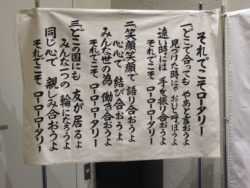 それでこそロータリー
一どこで会っても やあと言おうよ
見つけた時にゃ おいと呼ぼうよ
遠い時には 手を振り合おうよ
それでこそ ローローロータリー
二笑顔笑顔で 語り合おうよ
心心で 結び合おうよ
みんな世の為 働き合おうよ
それでこそ ローローロータリー
三どこの国にも 友が居るよ
みんな一つの 輪になろうよ
同じ心で 親しみ合おうよ
それでこそ ローローロータリー